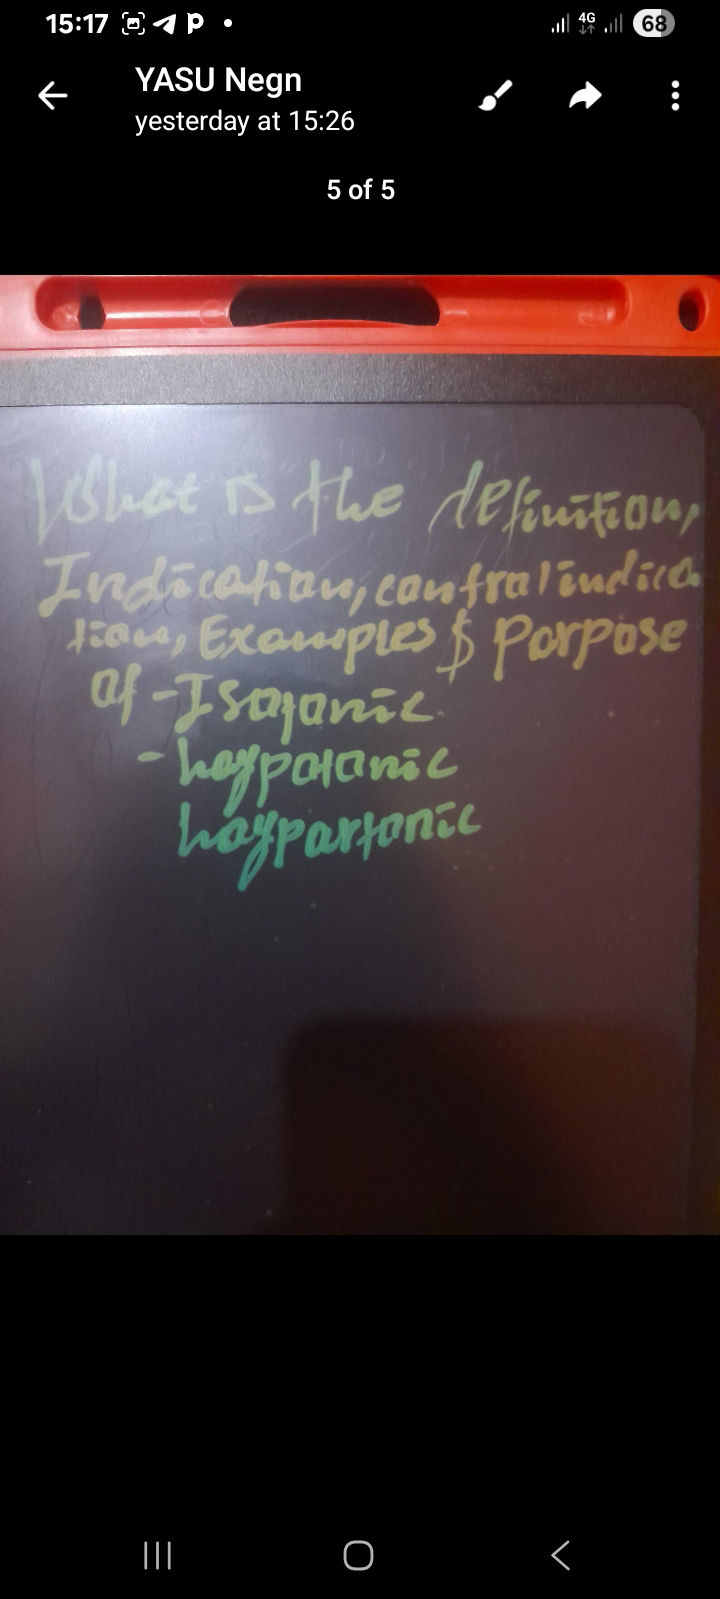 15:17
4G
68
YASU Negn
yesterday at 15:26
5 of 5
What is the definition,
Indication, contralindica
tion, Examples $ Porpose
of - Isotonic
- haypotonic
haypartonic